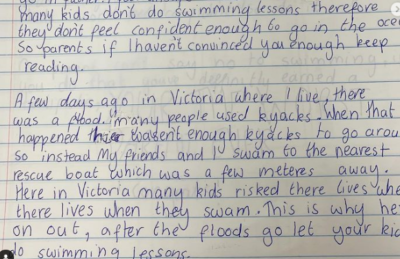 many kids dont do swimming lessons therefore
they don't feel confident enough to go in the oce
So parents if I havent convinced you enough keep
reading.
A few days ago in Victoria where I live, there
was a flood. many people used kyacks. When that
happened wasent enough kyacks to go arou
So instead My friends and I swam to the nearest
rescue boat which was a few meteres away.
Here in Victoria many kids risked there lives whe
there lives when they swam. This is why he
on out, after the floods go let your kid
do swimming lessons.